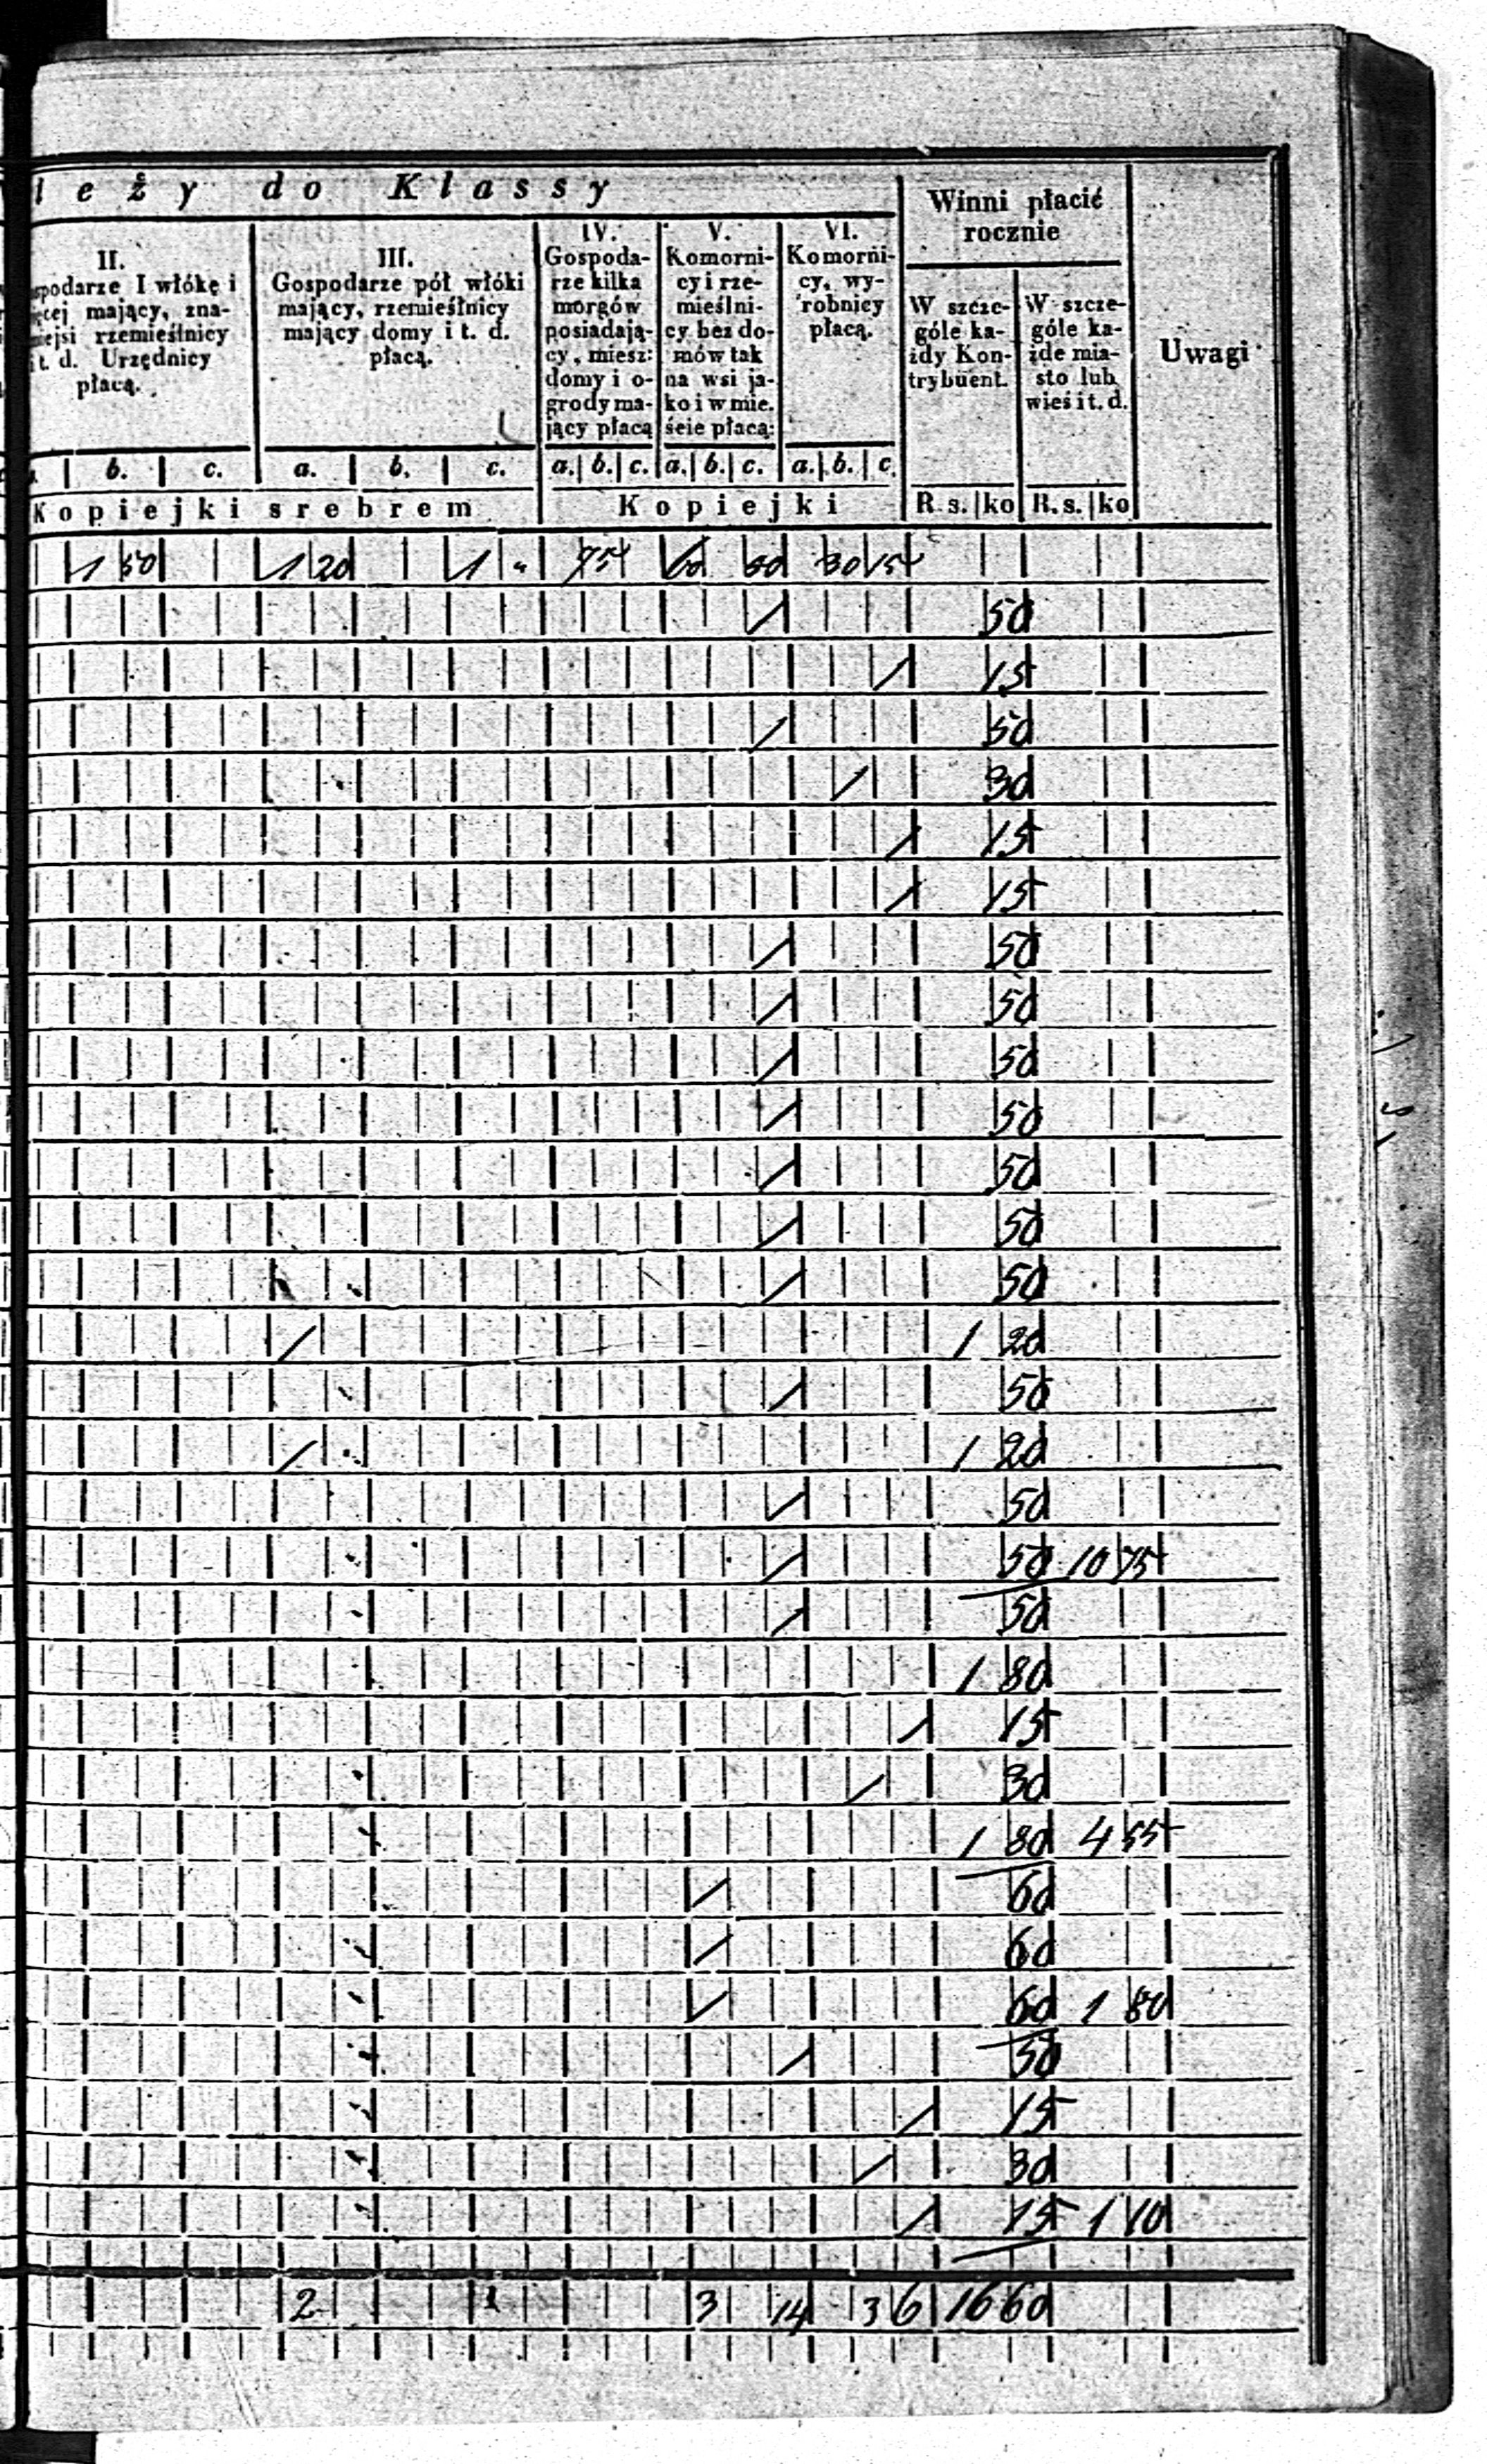 leży do Klassy
Winni płacić
rocznie
Uwagi
II.
podarze I włókę i
ęcej mający, zna-
iejsi rzemieślnicy
i t. d. Urzędnicy
płacą.
III.
Gospodarze pół włóki
mający, rzemieślnicy
mający domy i t. d.
płacą.
IV.
Gospoda-
rze kilka
morgów
posiadają-
cy, miesz:
domy i o-
grody ma-
jący płacą
V.
Komorni-
cy i rze-
mieślni-
cy bez do-
mów tak
na wsi ja-
ko i w mie.
ście płacą:
VI.
Komorni-
cy, wy-
robnicy
płacą.
W szcze-
góle ka-
żdy Kon-
trybuent.
W szcze-
góle ka-
żde mia-
sto lub
wieś i t. d.
b. c. a. b. c. a. b. c. a. b. c. a. b. c.
Kopiejki srebrem Kopiejki R. s. ko R. s. ko
1 50 1 20 1 " 75 60 50 30 15
/ 50
/ 15
/ 50
/ 30
/ 15
/ 15
/ 50
/ 50
/ 50
/ 50
/ 50
/ 50
/ 50
/ 1 20
/ 50
/ 1 20
/ 50
/ 50 10 75
/ 50
1 80
/ 15
/ 30
1 80 4 55
/ 60
/ 60
/ 60 1 80
/ 50
/ 15
/ 30
/ 15 1 10
2 1 3 14 3 6 16 60